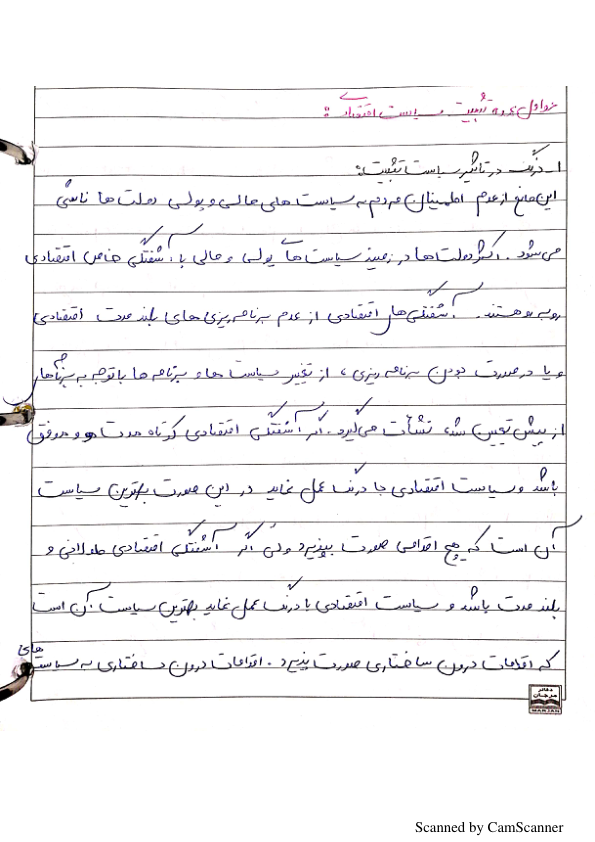 عوامل عمده تثبیت سیاست اقتصادی :
۱- درنگ در تاثیر سیاست تثبیت:
این مانع از عدم اطمینان مردم به سیاست های مالی و پولی دولت ها ناشی
می شود. اکثر دولت ها در زمینه سیاست های پولی و مالی با آشفتگی خاص اقتصادی
روبه رو هستند. آشفتگی های اقتصادی از عدم برنامه ریزی های بلند مدت اقتصادی
و یا در صورت بودن برنامه ریزی ، از تغییر سیاست ها و برنامه ها با توجه به برنامه های
از پیش تعیین شده نشأت می گیرد. اگر آشفتگی اقتصادی کوتاه مدت و موفق
باشد و سیاست اقتصادی با درنگ عمل نماید در این صورت بهترین سیاست
آن است که هیچ اقدامی صورت نپذیرد ولی اگر آشفتگی اقتصادی طولانی و
بلند مدت باشد و سیاست اقتصادی با درنگ عمل نماید بهترین سیاست آن است
که اقدامات درون ساختاری صورت پذیرد. اقدامات درون ساختاری به سیاست های
دفاتر
مرجان
MARJAN
Scanned by CamScanner